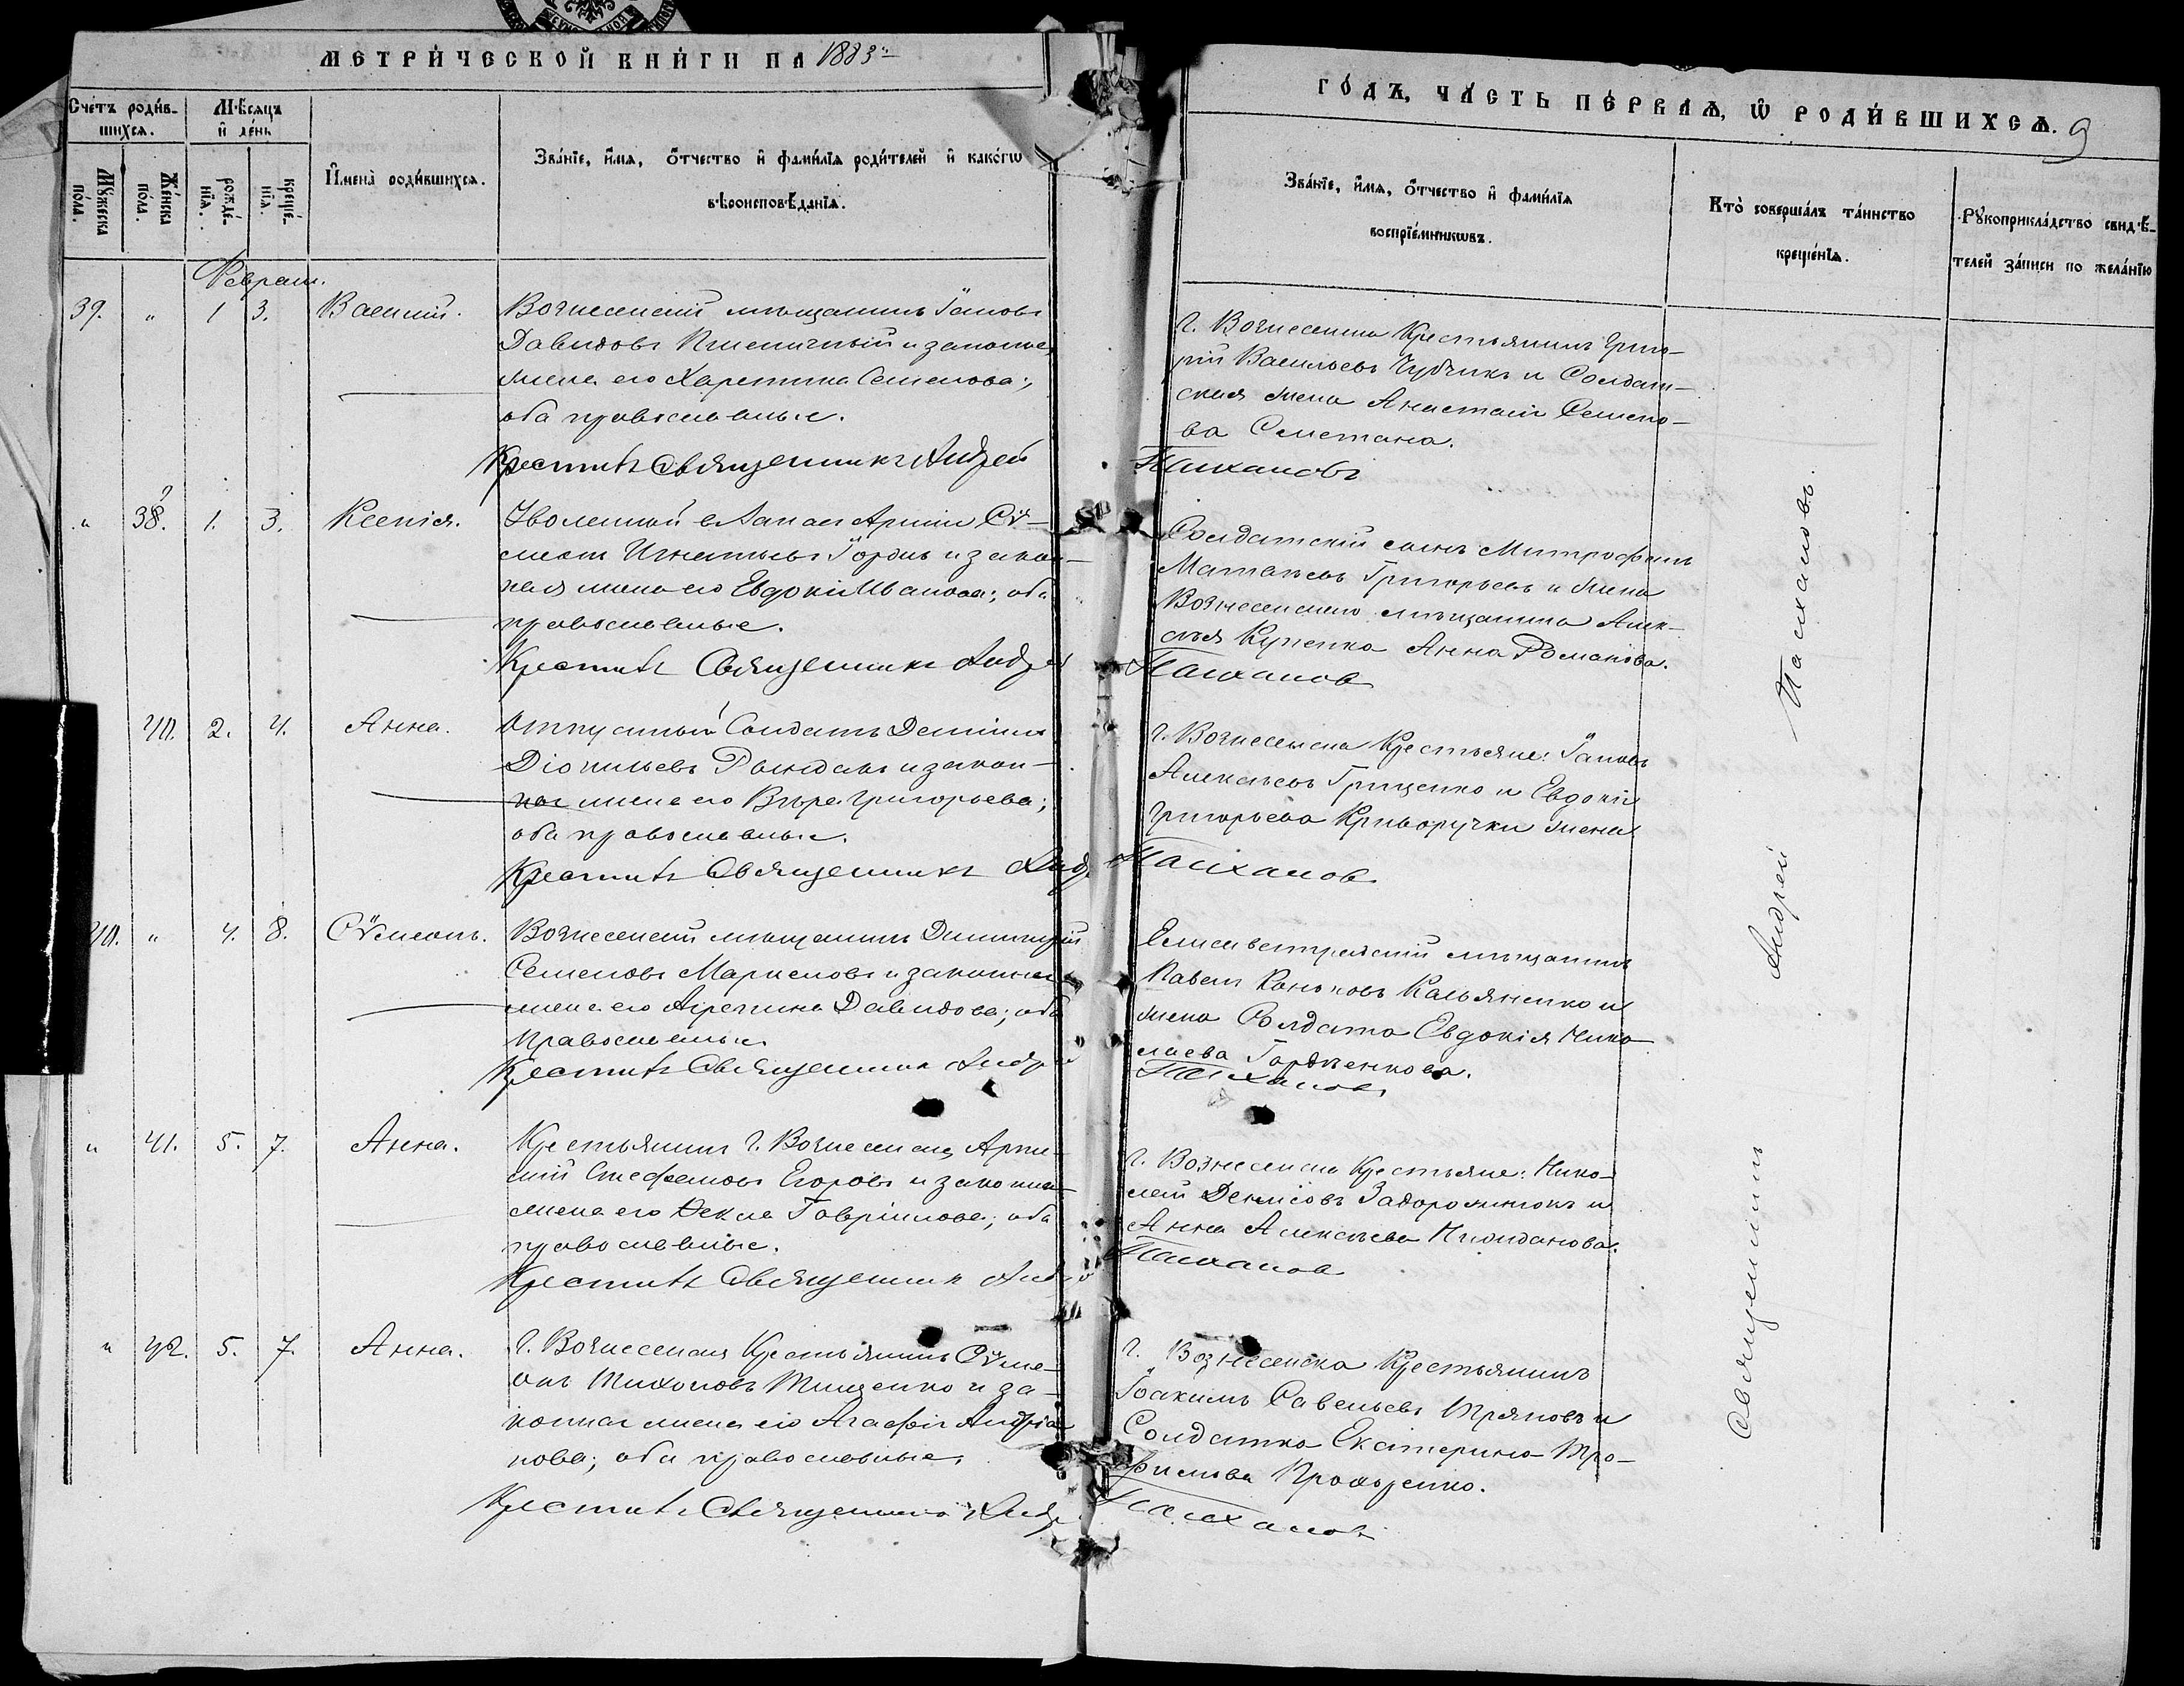 МЕТРИ́ЧЕСКОЙ КНИ́ГИ НА 1883й
ГО́ДЪ, ЧА́СТЬ ПЕ́РВАѦ, Ѡ РОДИ́ВШИХСѦ. 9
Сче́тъ роди́в-
шихсѧ.
Мѣ́сѧцъ
и̂ де́нь
Мꙋ́жеска по́ла.
Же́нска по́ла.
рожде́-нїѧ.
креще́-нїѧ.
И̂мена̀ роди́вшихсѧ.
Зва́нїе, и́мѧ, о́тчество и̂ фами́лїѧ роди́телей и̂ како́гѡ
вѣроисповѣ́данїѧ.
Зва́нїе, и́мѧ, о́тчество и̂ фами́лїѧ
воспрїе́мникѡвъ.
Кто̀ соверша́лъ та́инство
креще́нїѧ.
Рꙋкоприкла́дство свидѣ́-
телей за́писи по жела́нїю
Феврал.
39. " 1 3. Василій.
Вознесенскій мѣщанинъ Іаковъ
Давидовъ Пшеничный и законная
жена его Харитина Семенова;
оба православные.
Крестилъ Священникъ Андрей Палхановъ
г. Вознесенска Крестьянинъ Григо-
рій Васильевъ Чубчикъ и Солдат-
ская жена Анастасія Семено-
ва Сметана.
" 38. 9 1. 3. Ксенія.
Уволенный в Запас Арміи Сѵ-
меон Игнатьевъ Гордь и закон-
ная жена его Евдокія Иванова; оба
православные.
Крестилъ Священникъ Андрей Палханов
Солдатскій сынъ Митрофанъ
Матвѣевъ Григорьевъ и жена
Вознесенскаго мѣщанина Алек-
сѣя Куценка Анна Романова.
40. 2. 4. Анна.
Отпускный Солдатъ Деміанъ
Діонисьевъ и закон-
ная жена его Вѣра Григорьева;
оба православные.
Крестилъ Священникъ Андрей Палханов
г. Вознесенска Крестьяне: Іаковъ
Алексѣевъ Гриценко и Евдокія
Григорьева Криворучки жена
40. " 4. 8. Сѵмеонъ.
Вознесенскій мѣщанинъ Димитрій
Семеновъ Маркеловъ и законная
жена его Давидова; оба
православные.
Крестилъ Священникъ Андрей Палхановъ
Елисаветградскій мѣщанинъ
Павелъ Кононовъ Касьяненко и
жена Солдата Евдокія Нико-
лаева Гордіенкова.
" 41. 5. 7. Анна.
Крестьянинъ г. Вознесенска Арте-
мій Стефановъ Егоровъ и законная
жена его Ѳекла Гавріилова; оба
православные.
Крестилъ Священникъ Андрей Палханов
г. Вознесенска Крестьяне: Нико-
лай Денисовъ Задорожнюкъ и
Анна Алексѣева
" 42. 5. 7. Анна.
г. Вознесенска Крестьянинъ Сѵме-
онъ Тихоновъ Тищенко и за-
конная жена его Агафія Андріа-
нова; оба православные.
Крестилъ Священникъ Андрей Палханов
г. Вознесенска Крестьянинъ
Іоакимъ Савельевъ и
Солдатка Екатерина Тро-
фимова
Священникъ Андрей Палхановъ.